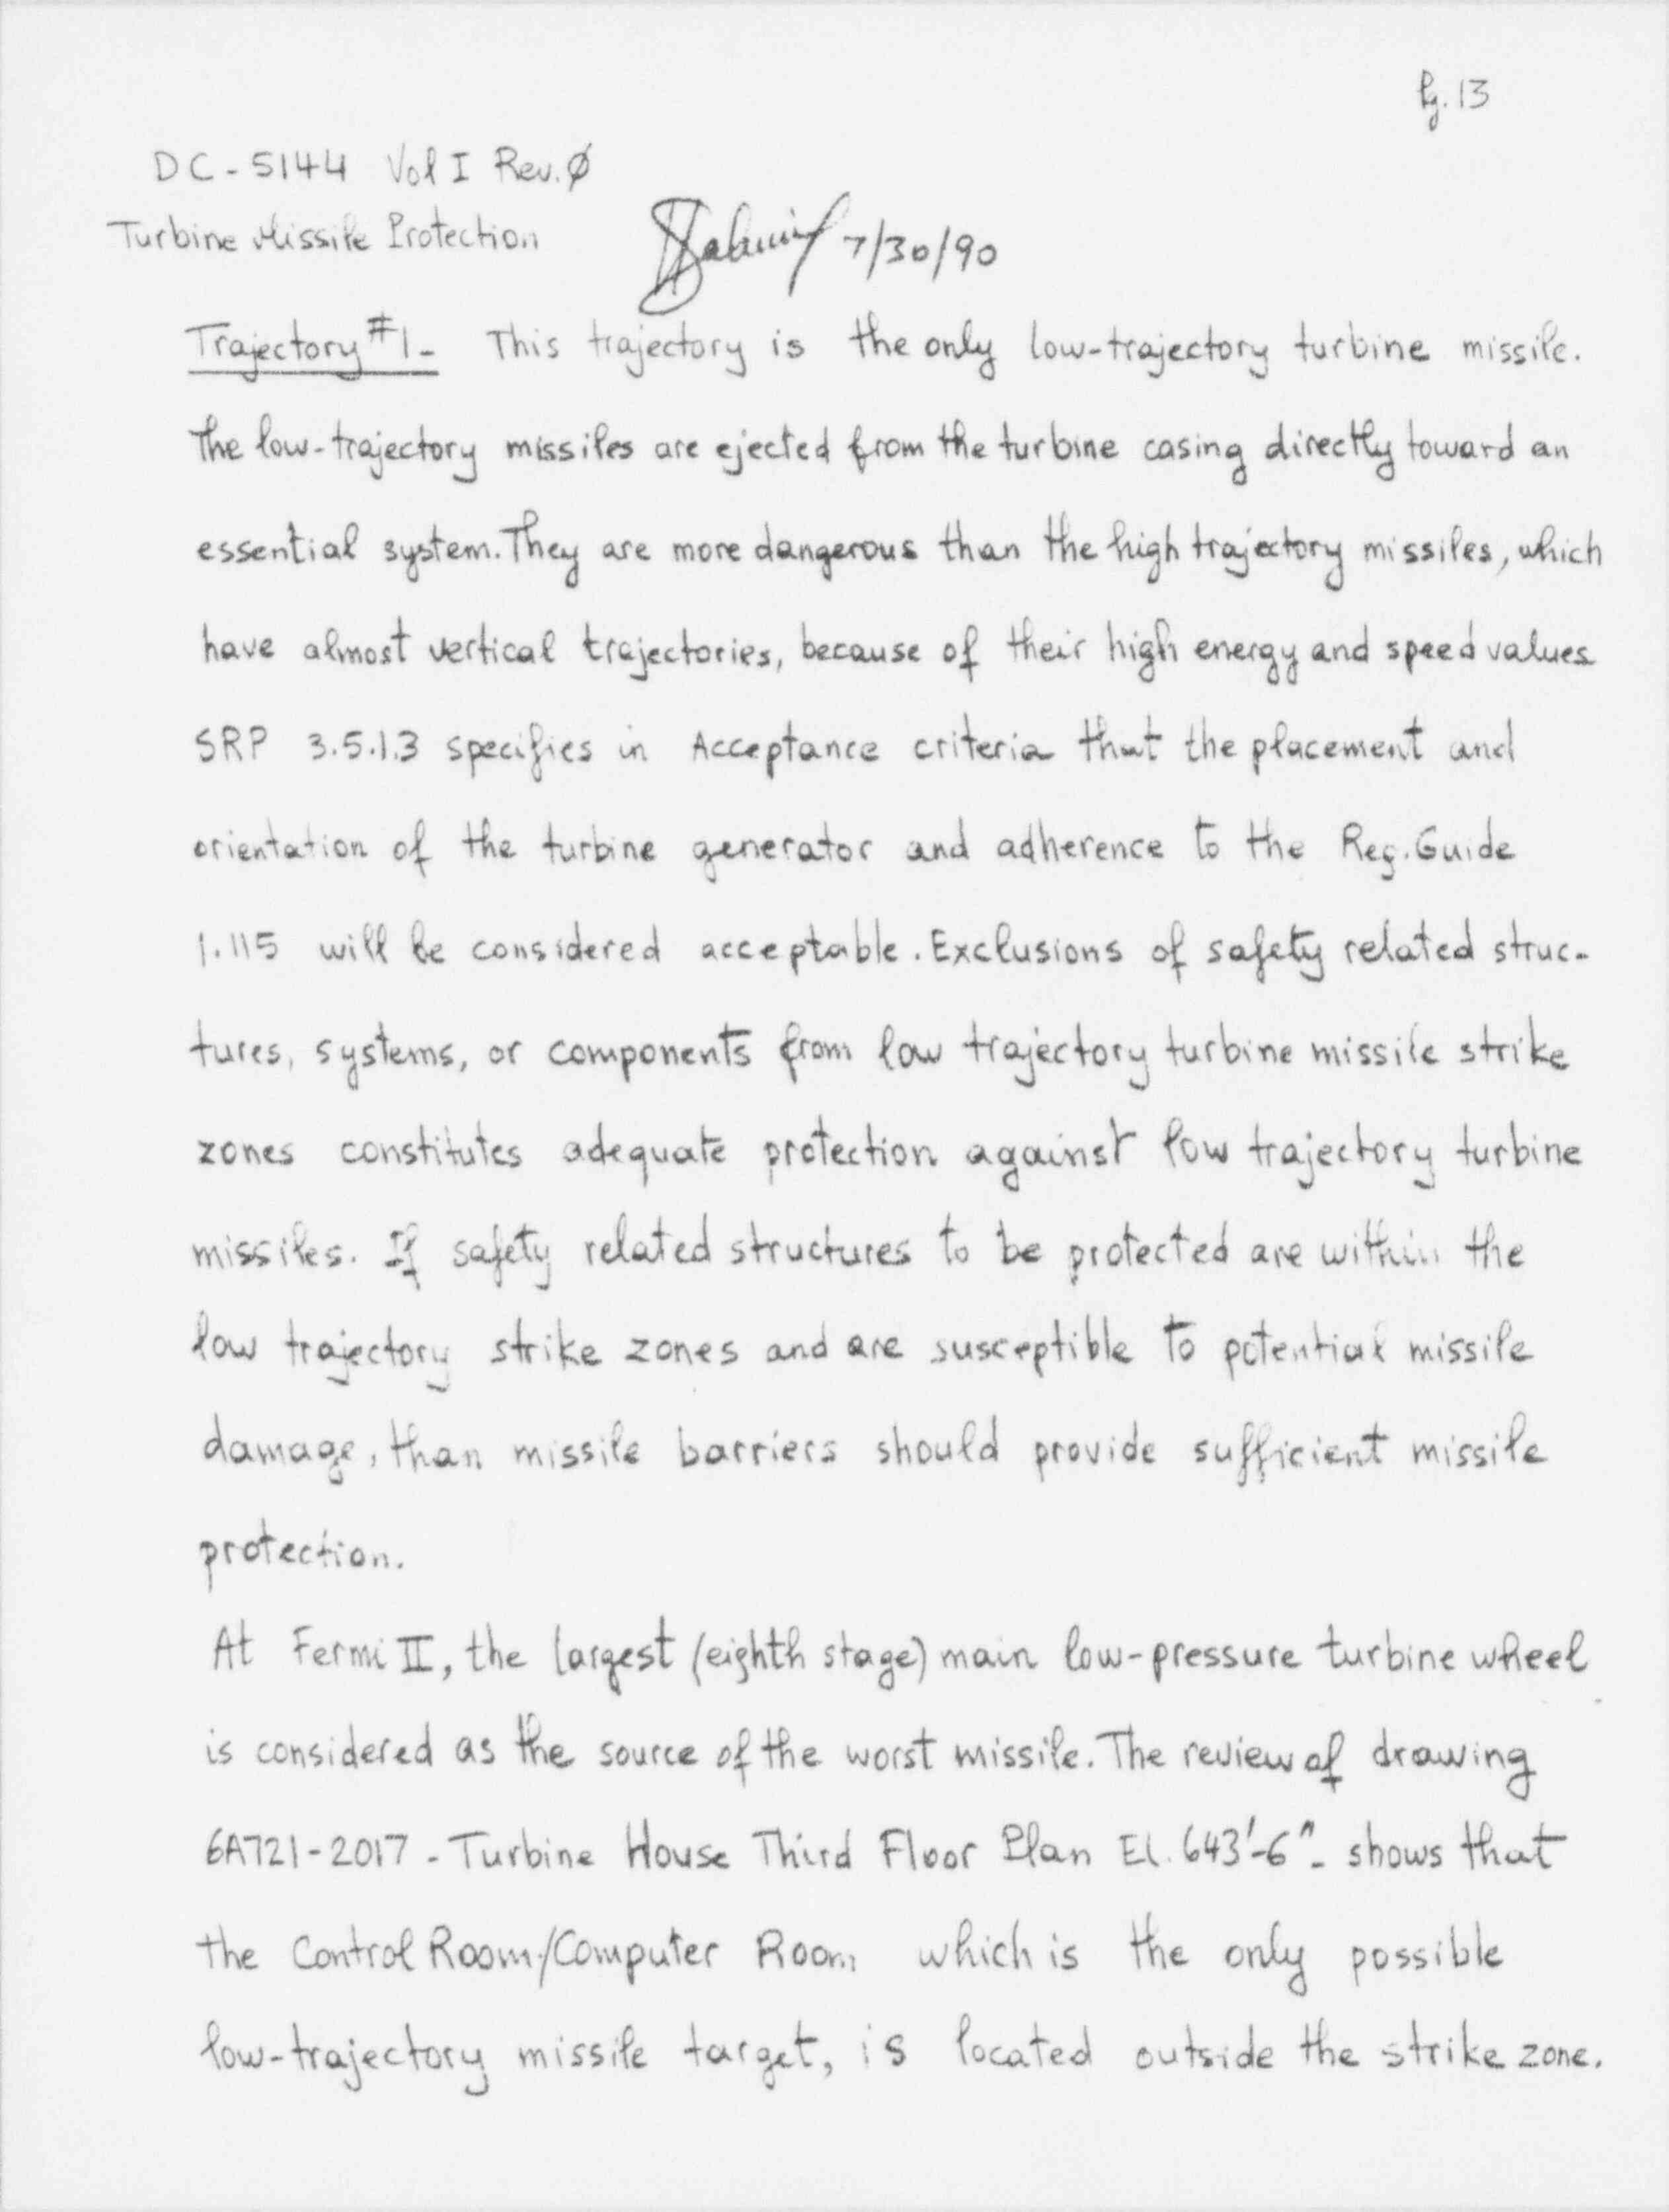 Pg. 13
DC - 5144 Vol I Rev. Ø
Turbine Missile Protection
7/30/90
Trajectory #1- This trajectory is the only low-trajectory turbine missile.
The low-trajectory missiles are ejected from the turbine casing directly toward an
essential system. They are more dangerous than the high trajectory missiles, which
have almost vertical trajectories, because of their high energy and speed values
SRP 3.5.1.3 specifies in Acceptance criteria that the placement and
orientation of the turbine generator and adherence to the Reg. Guide
1.115 will be considered acceptable. Exclusions of safety related struc-
tures, systems, or components from low trajectory turbine missile strike
zones constitutes adequate protection against low trajectory turbine
missiles. If safety related structures to be protected are within the
low trajectory strike zones and are susceptible to potential missile
damage, than missile barriers should provide sufficient missile
protection.
At Fermi II, the largest (eighth stage) main low-pressure turbine wheel
is considered as the source of the worst missile. The review of drawing
6A721-2017 - Turbine House Third Floor Plan El. 643'-6" - shows that
the Control Room/Computer Room which is the only possible
low-trajectory missile target, is located outside the strike zone.